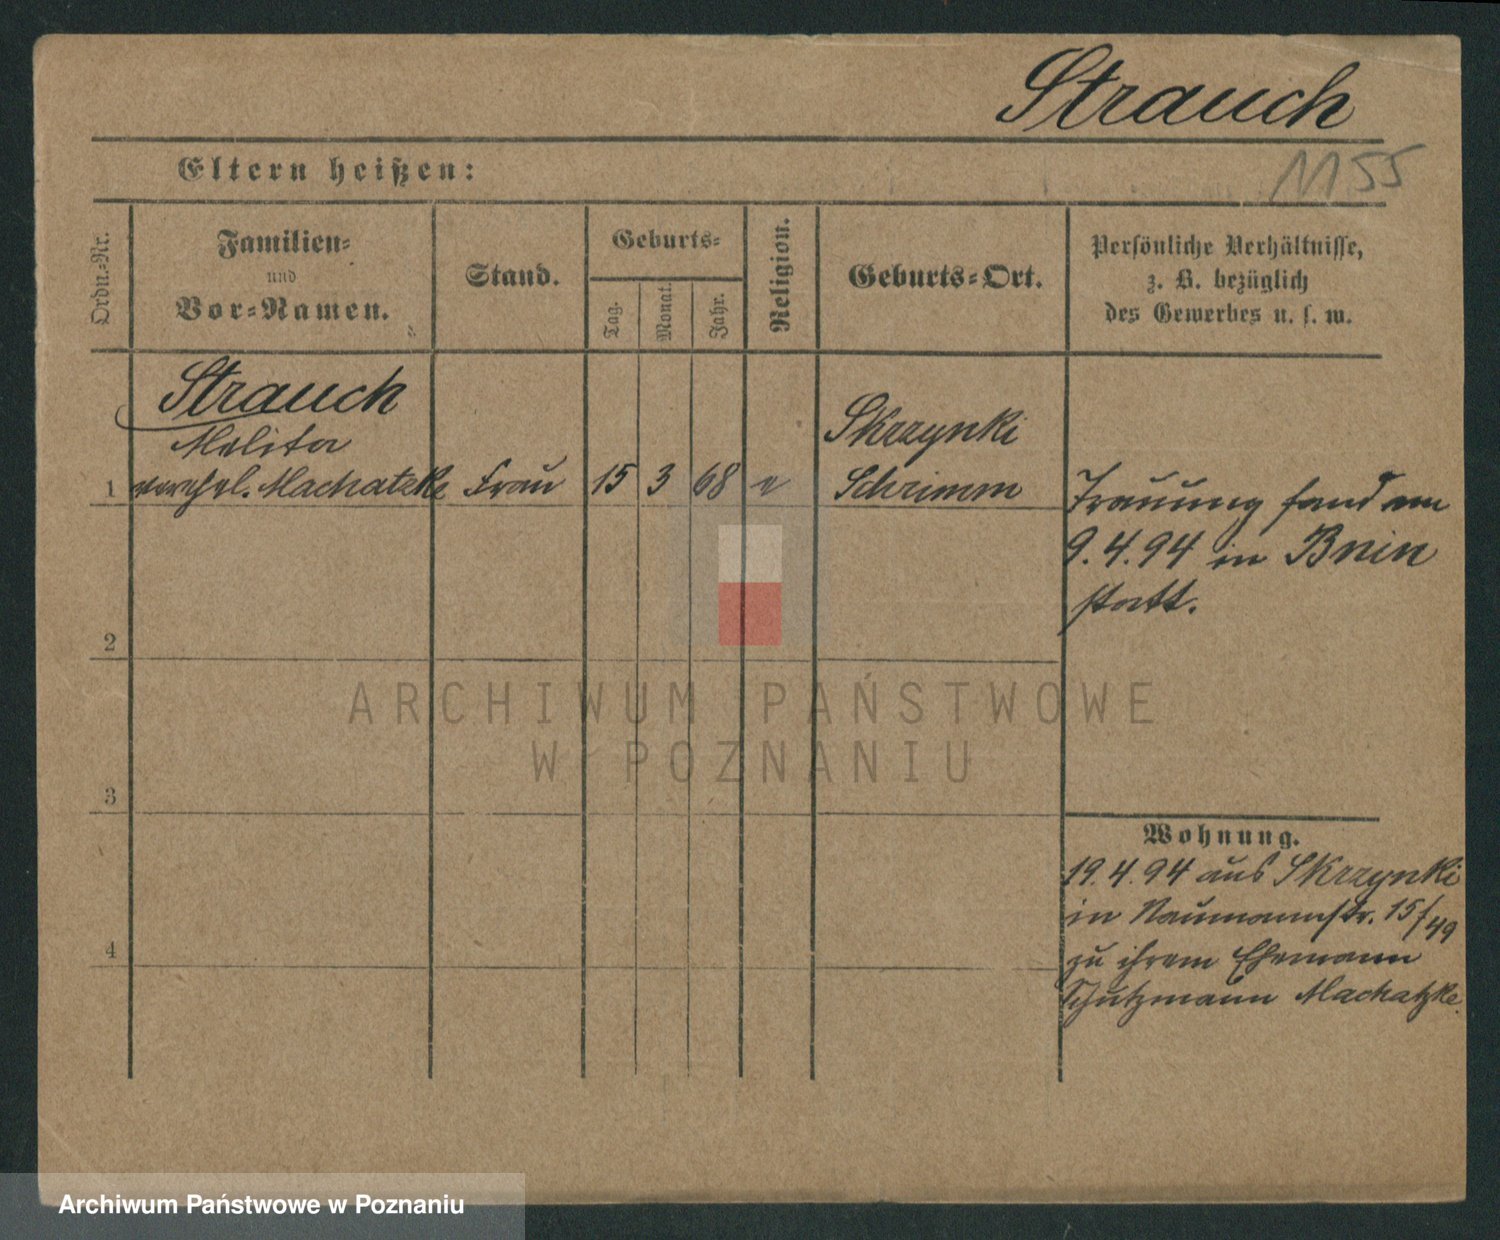 Strauch
1155
Eltern heißen:
Ordn.-Nr.
Familien-
und
Vor-Namen.
Stand.
Geburts-
Tag.
Monat.
Jahr.
Religion.
Geburts-Ort.
Persönliche Verhältnisse,
z. B. bezüglich
des Gewerbes u. s. w.
Strauch
Melita
1 verehel. Machatzke Frau 15 3 68 e
Skrzynki
Schrimm
Trauung fand am
9.4.94 in Bnin
statt.
2
3
4
Wohnung.
19.4.94 aus Skrzynki
in Naumannstr. 15/49
zu ihrem Ehemann
Schutzmann Machatzke.
ARCHIWUM PAŃSTWOWE
W POZNANIU
Archiwum Państwowe w Poznaniu